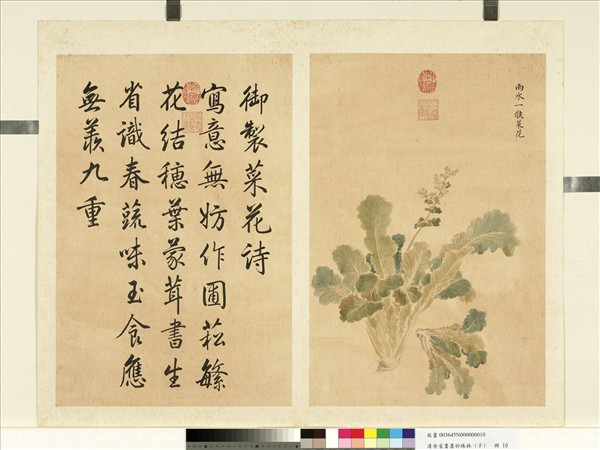 雨水一候菜花
御製菜花詩
寫意無妨作圃菘繁
花結穗葉蒙茸書生
省識春蔬味玉食應
無羨九重
故畫 003645N000000010
清余省畫墨妙珠林（子） 冊 10